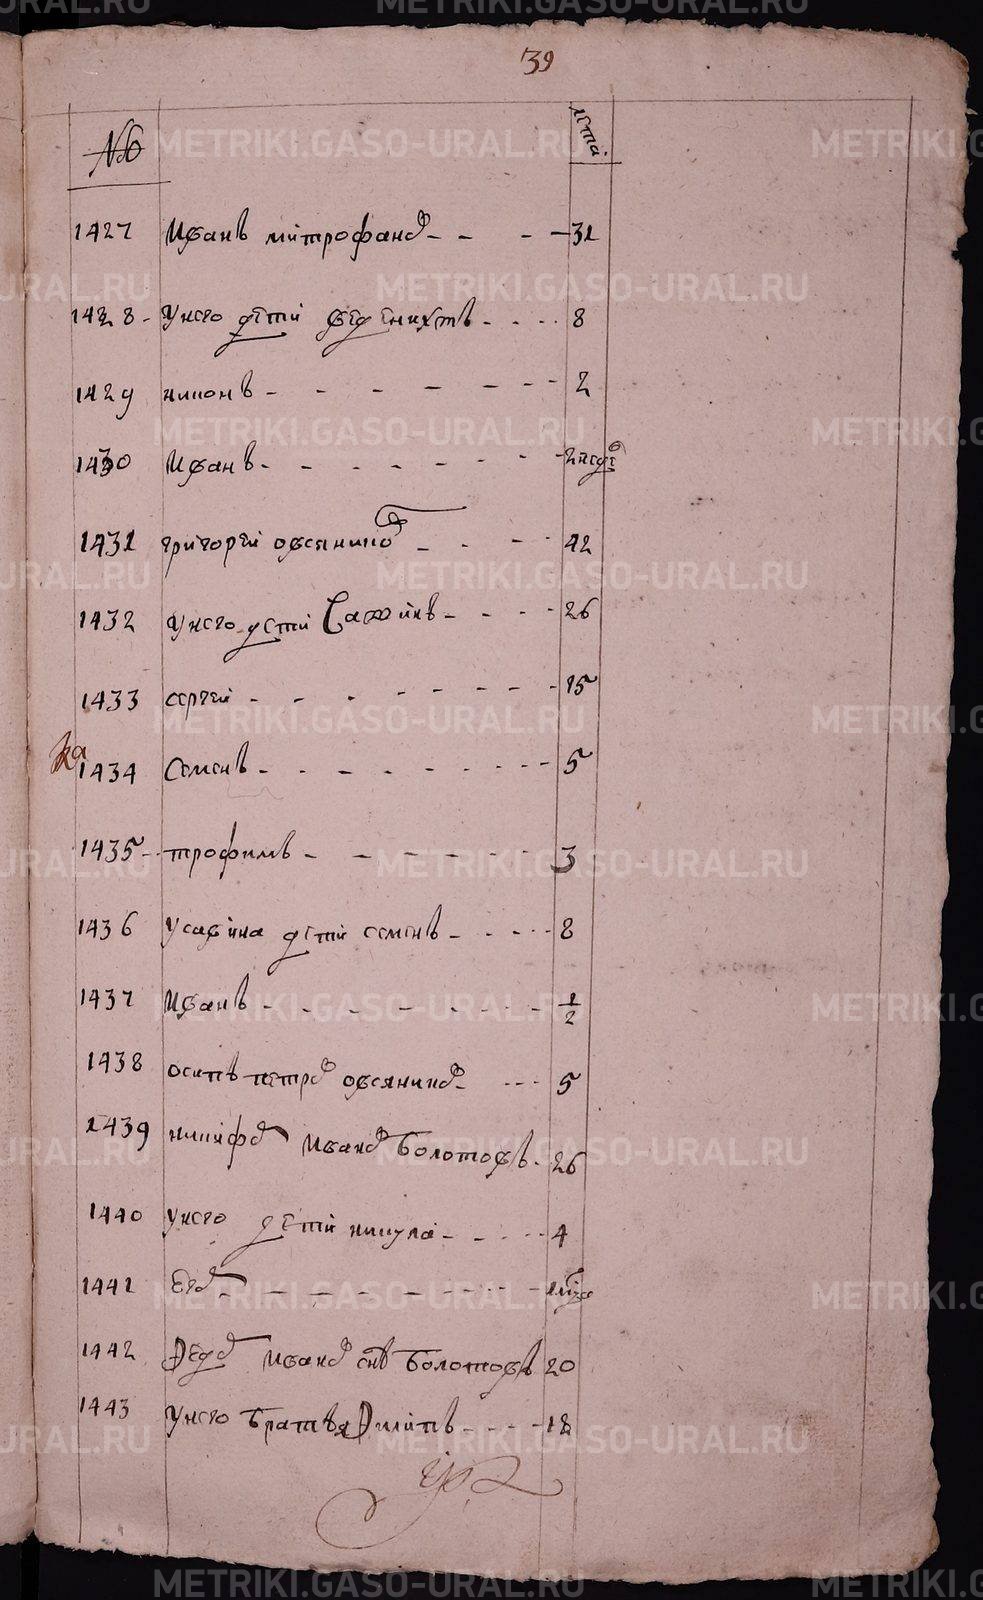 39
№ лета
1427 Иванъ митрофановъ - - - - 31
1428 - У него дети веденихтъ - - - - 8
1429 никонъ - - - - - - 2
1430 Иванъ - - - - - - -
1431 григорей овсяниковъ - - - - 42
1432 У него дети Савинъ - - - - 26
1433 сергей - - - - - - - 15
1434 Семенъ - - - - - - - - 5
1435 - трофимъ - - - - - - 3
1436 У савина дети семенъ - - - - 8
1437 Иванъ - - - - - - - 1/2
1438 осипъ петровъ овсяниковъ - - - - 5
1439 никифоръ Ивановъ болотовъ - 26
1440 У него дети никула - - - - 4
1441 Егоръ - - - - - - - -
1442 Федоръ Ивановъ снъ болотовъ 20
1443 У него братья Филипъ - - - - 18
METRIKI.GASO-URAL.RU